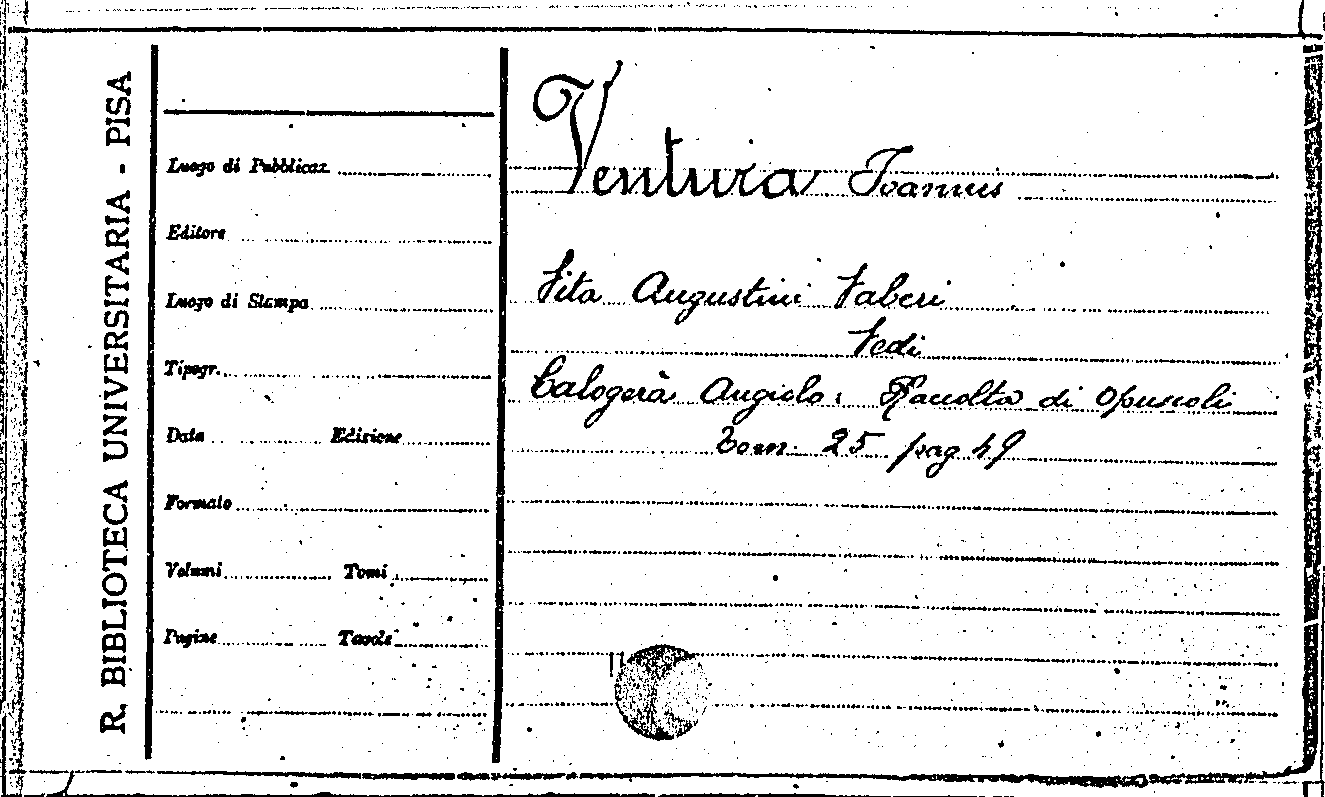 R. BIBLIOTECA UNIVERSITARIA - PISA
Luogo di Pubblicaz.
Editore
Luogo di Stampa
Tipogr.
Data Edizione
Formato
Volumi Tomi
Pagine Tavole
Ventura Joannis
Vita Augustini Faberi
Vedi
Calogerà Angiolo: Raccolta di Opuscoli
Tom. 25 pag 49